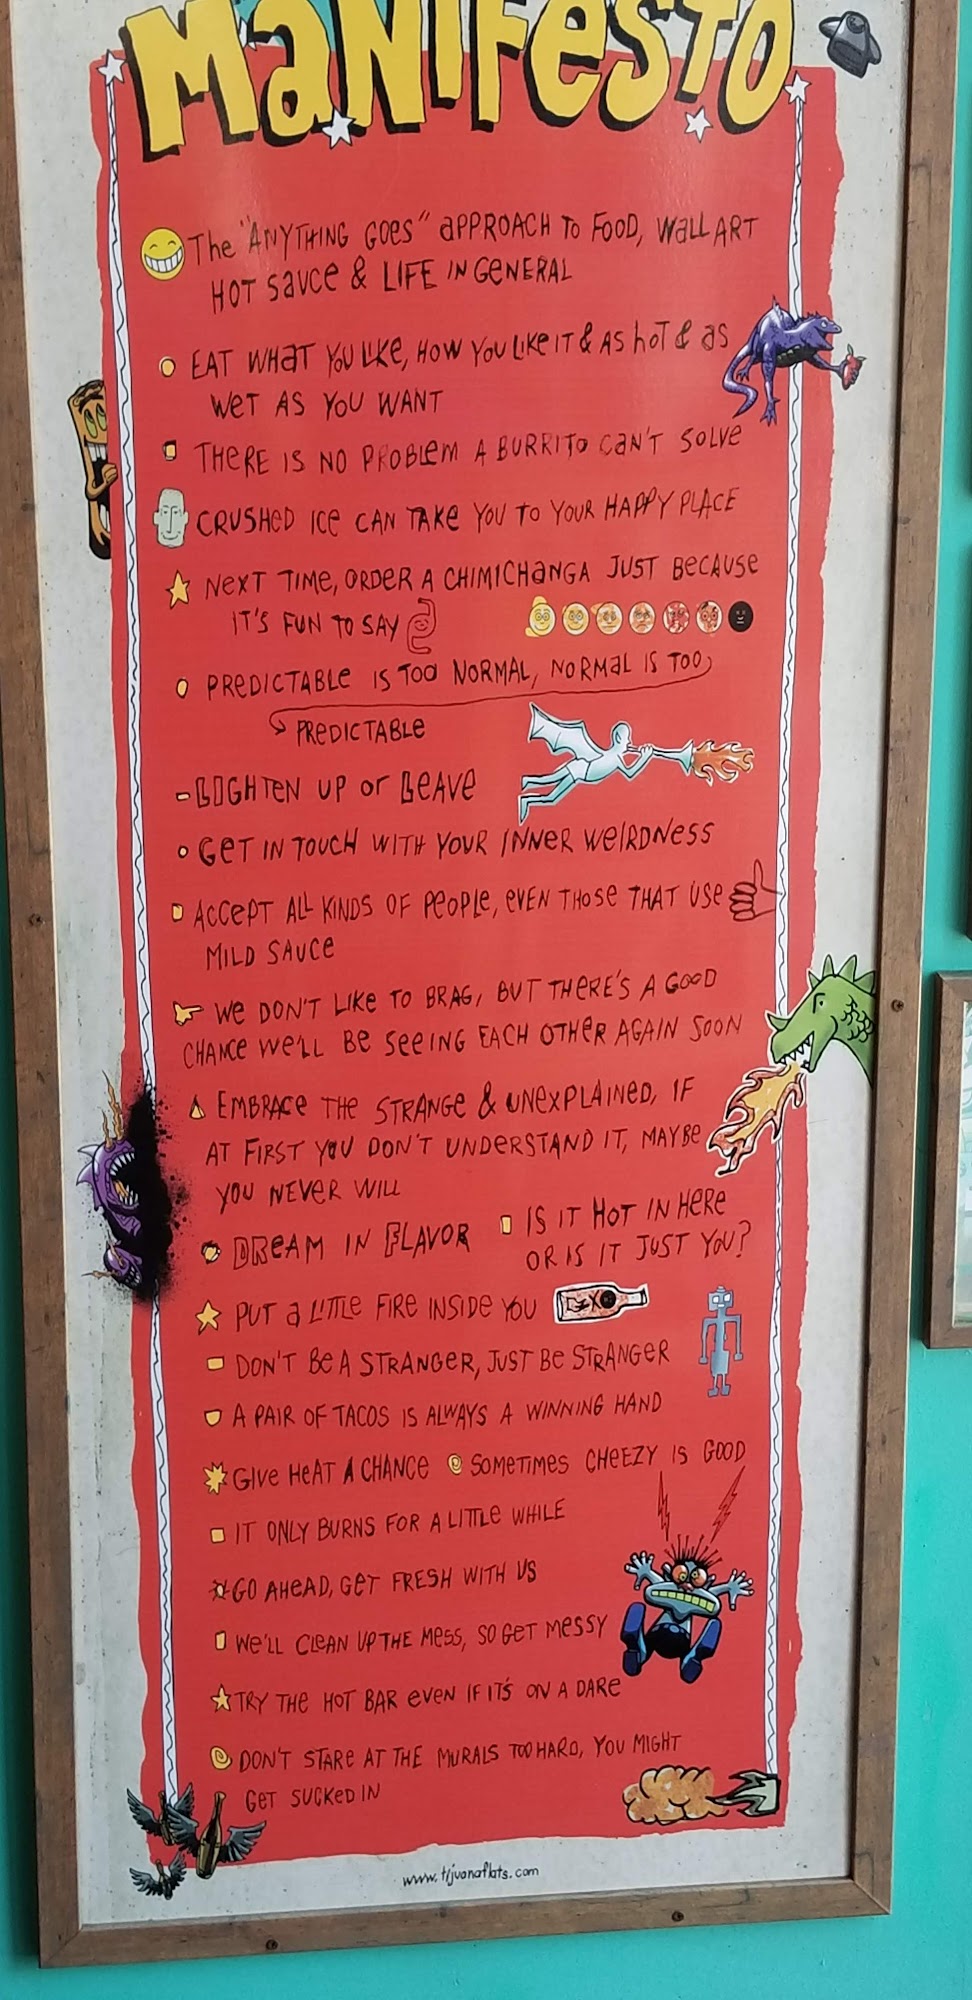 MANIFESTO
The "ANYTHING GOES" APPROACH TO FOOD, WALL ART
HOT SAUCE & LIFE IN GENERAL
EAT WHAT YOU LIKE, HOW YOU LIKE IT & AS HOT & AS
WET AS YOU WANT
THERE IS NO PROBLEM A BURRITO CAN'T SOLVE
CRUSHED ICE CAN TAKE YOU TO YOUR HAPPY PLACE
NEXT TIME, ORDER A CHIMICHANGA JUST BECAUSE
IT'S FUN TO SAY
PREDICTABLE IS TOO NORMAL, NORMAL IS TOO
PREDICTABLE
LIGHTEN UP or LEAVE
GET IN TOUCH WITH YOUR INNER WEIRDNESS
ACCEPT ALL KINDS OF PEOPLE, EVEN THOSE THAT USE
MILD SAUCE
WE DON'T LIKE TO BRAG, BUT THERE'S A GOOD
CHANCE WE'LL BE SEEING EACH OTHER AGAIN SOON
EMBRACE THE STRANGE & UNEXPLAINED, IF
AT FIRST YOU DON'T UNDERSTAND IT, MAYBE
YOU NEVER WILL
DREAM IN FLAVOR
IS IT HOT IN HERE
OR IS IT JUST YOU?
PUT A LITTLE FIRE INSIDE YOU
DON'T BE A STRANGER, JUST BE STRANGER
A PAIR OF TACOS IS ALWAYS A WINNING HAND
GIVE HEAT A CHANCE
SOMETIMES CHEEZY IS GOOD
IT ONLY BURNS FOR A LITTLE WHILE
GO AHEAD, GET FRESH WITH US
WE'LL CLEAN UP THE MESS, SO GET MESSY
TRY THE HOT BAR EVEN IF IT'S ON A DARE
DON'T STARE AT THE MURALS TOO HARD, YOU MIGHT
GET SUCKED IN
www.tijuanaflats.com